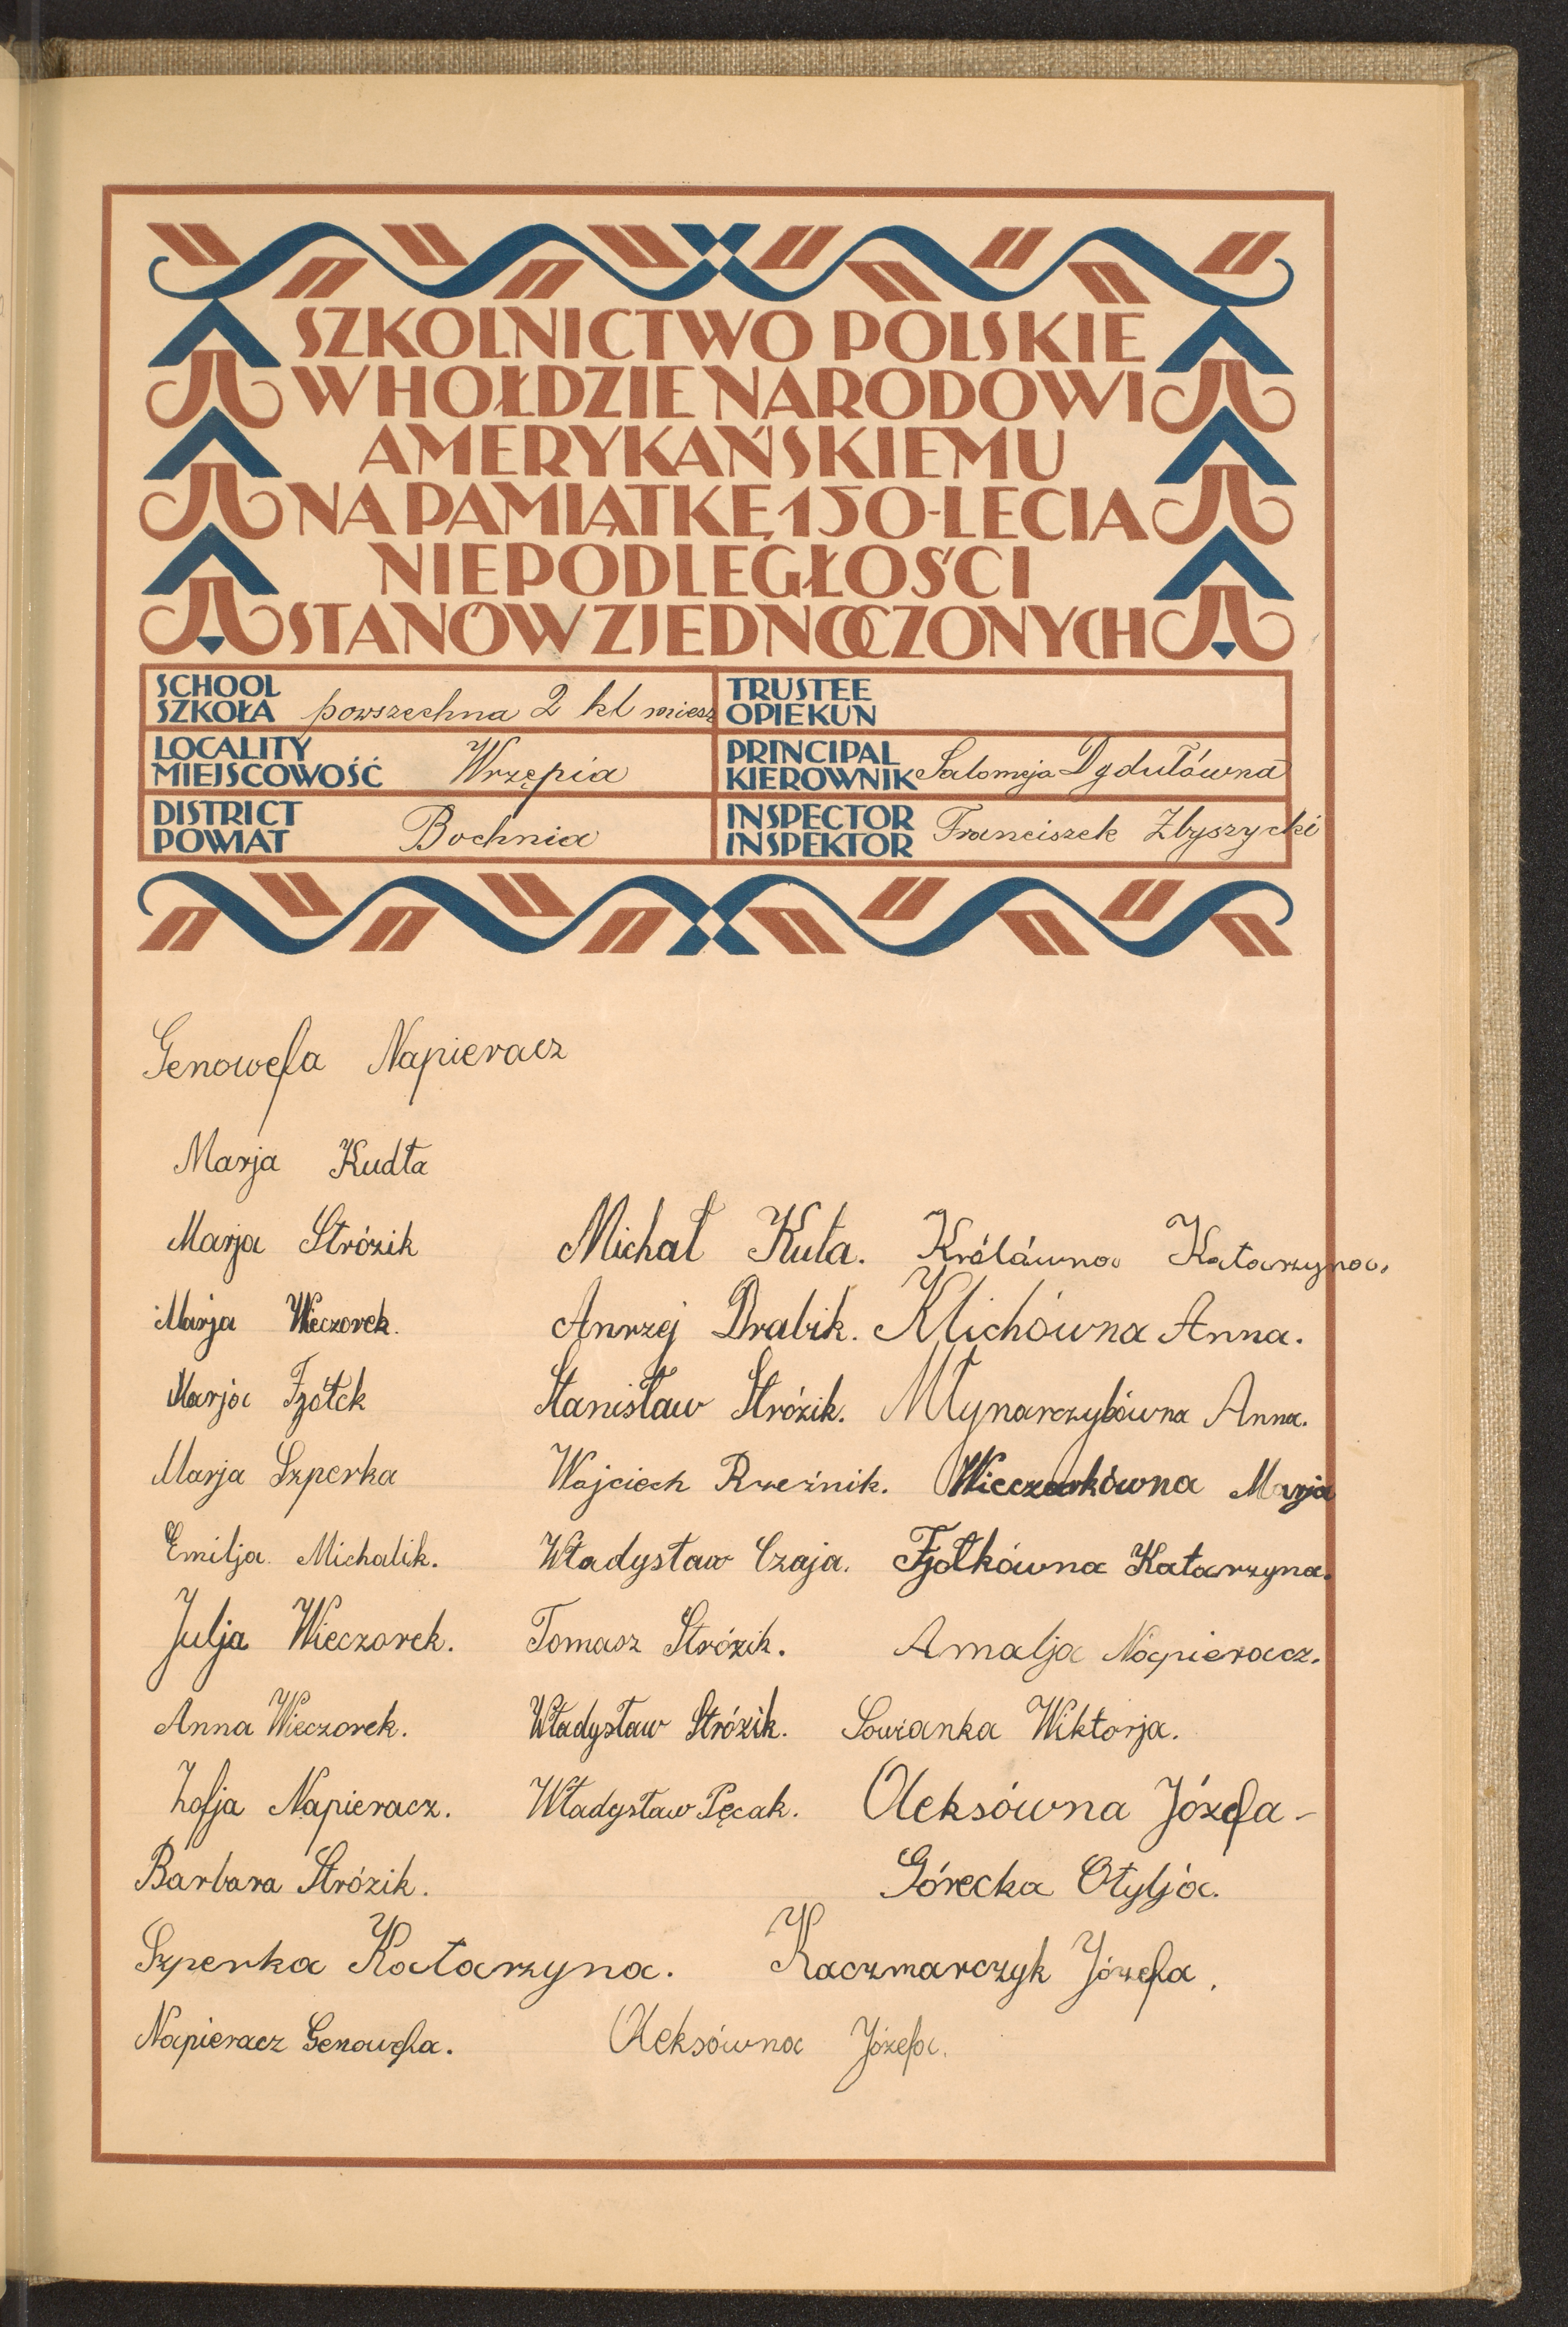 SZKOLNICTWO POLSKIE
W HOŁDZIE NARODOWI
AMERYKAŃSKIEMU
NA PAMIĄTKĘ 150-LECIA
NIEPODLEGŁOŚCI
STANÓW ZJEDNOCZONYCH
SCHOOL
SZKOŁA powszechna 2 kl miesz
TRUSTEE
OPIEKUN
LOCALITY
MIEJSCOWOŚĆ Wrzępia
PRINCIPAL
KIEROWNIK Salomeja Dydułówna
DISTRICT
POWIAT Bochnia
INSPECTOR
INSPEKTOR Franciszek Zbyszycki
Genowefa Napieracz
Marja Kudła
Marja Strózik Michał Kuta. Króláwna Katarzyna.
Marja Wieczorek. Anrzej Drabik. Klichówna Anna.
Marja Fjółek Stanisław Strózik. Młynarczykówna Anna.
Marja Szperka Wojciech Rzeźnik. Wieczorkówna Marja
Emilja Michalik. Władysław Czaja. Fjołkówna Katarzyna.
Julja Wieczorek. Tomasz Strózik. Amalja Napieracz.
Anna Wieczorek. Władysław Strózik. Sowianka Wiktorja.
Zofja Napieracz. Władysław Pęcak. Oleksówna Józefa -
Barbara Strózik. Górecka Otylja.
Szperka Katarzyna. Kaczmarczyk Józefa.
Napieracz Genowefa. Oleksówna Józefa.